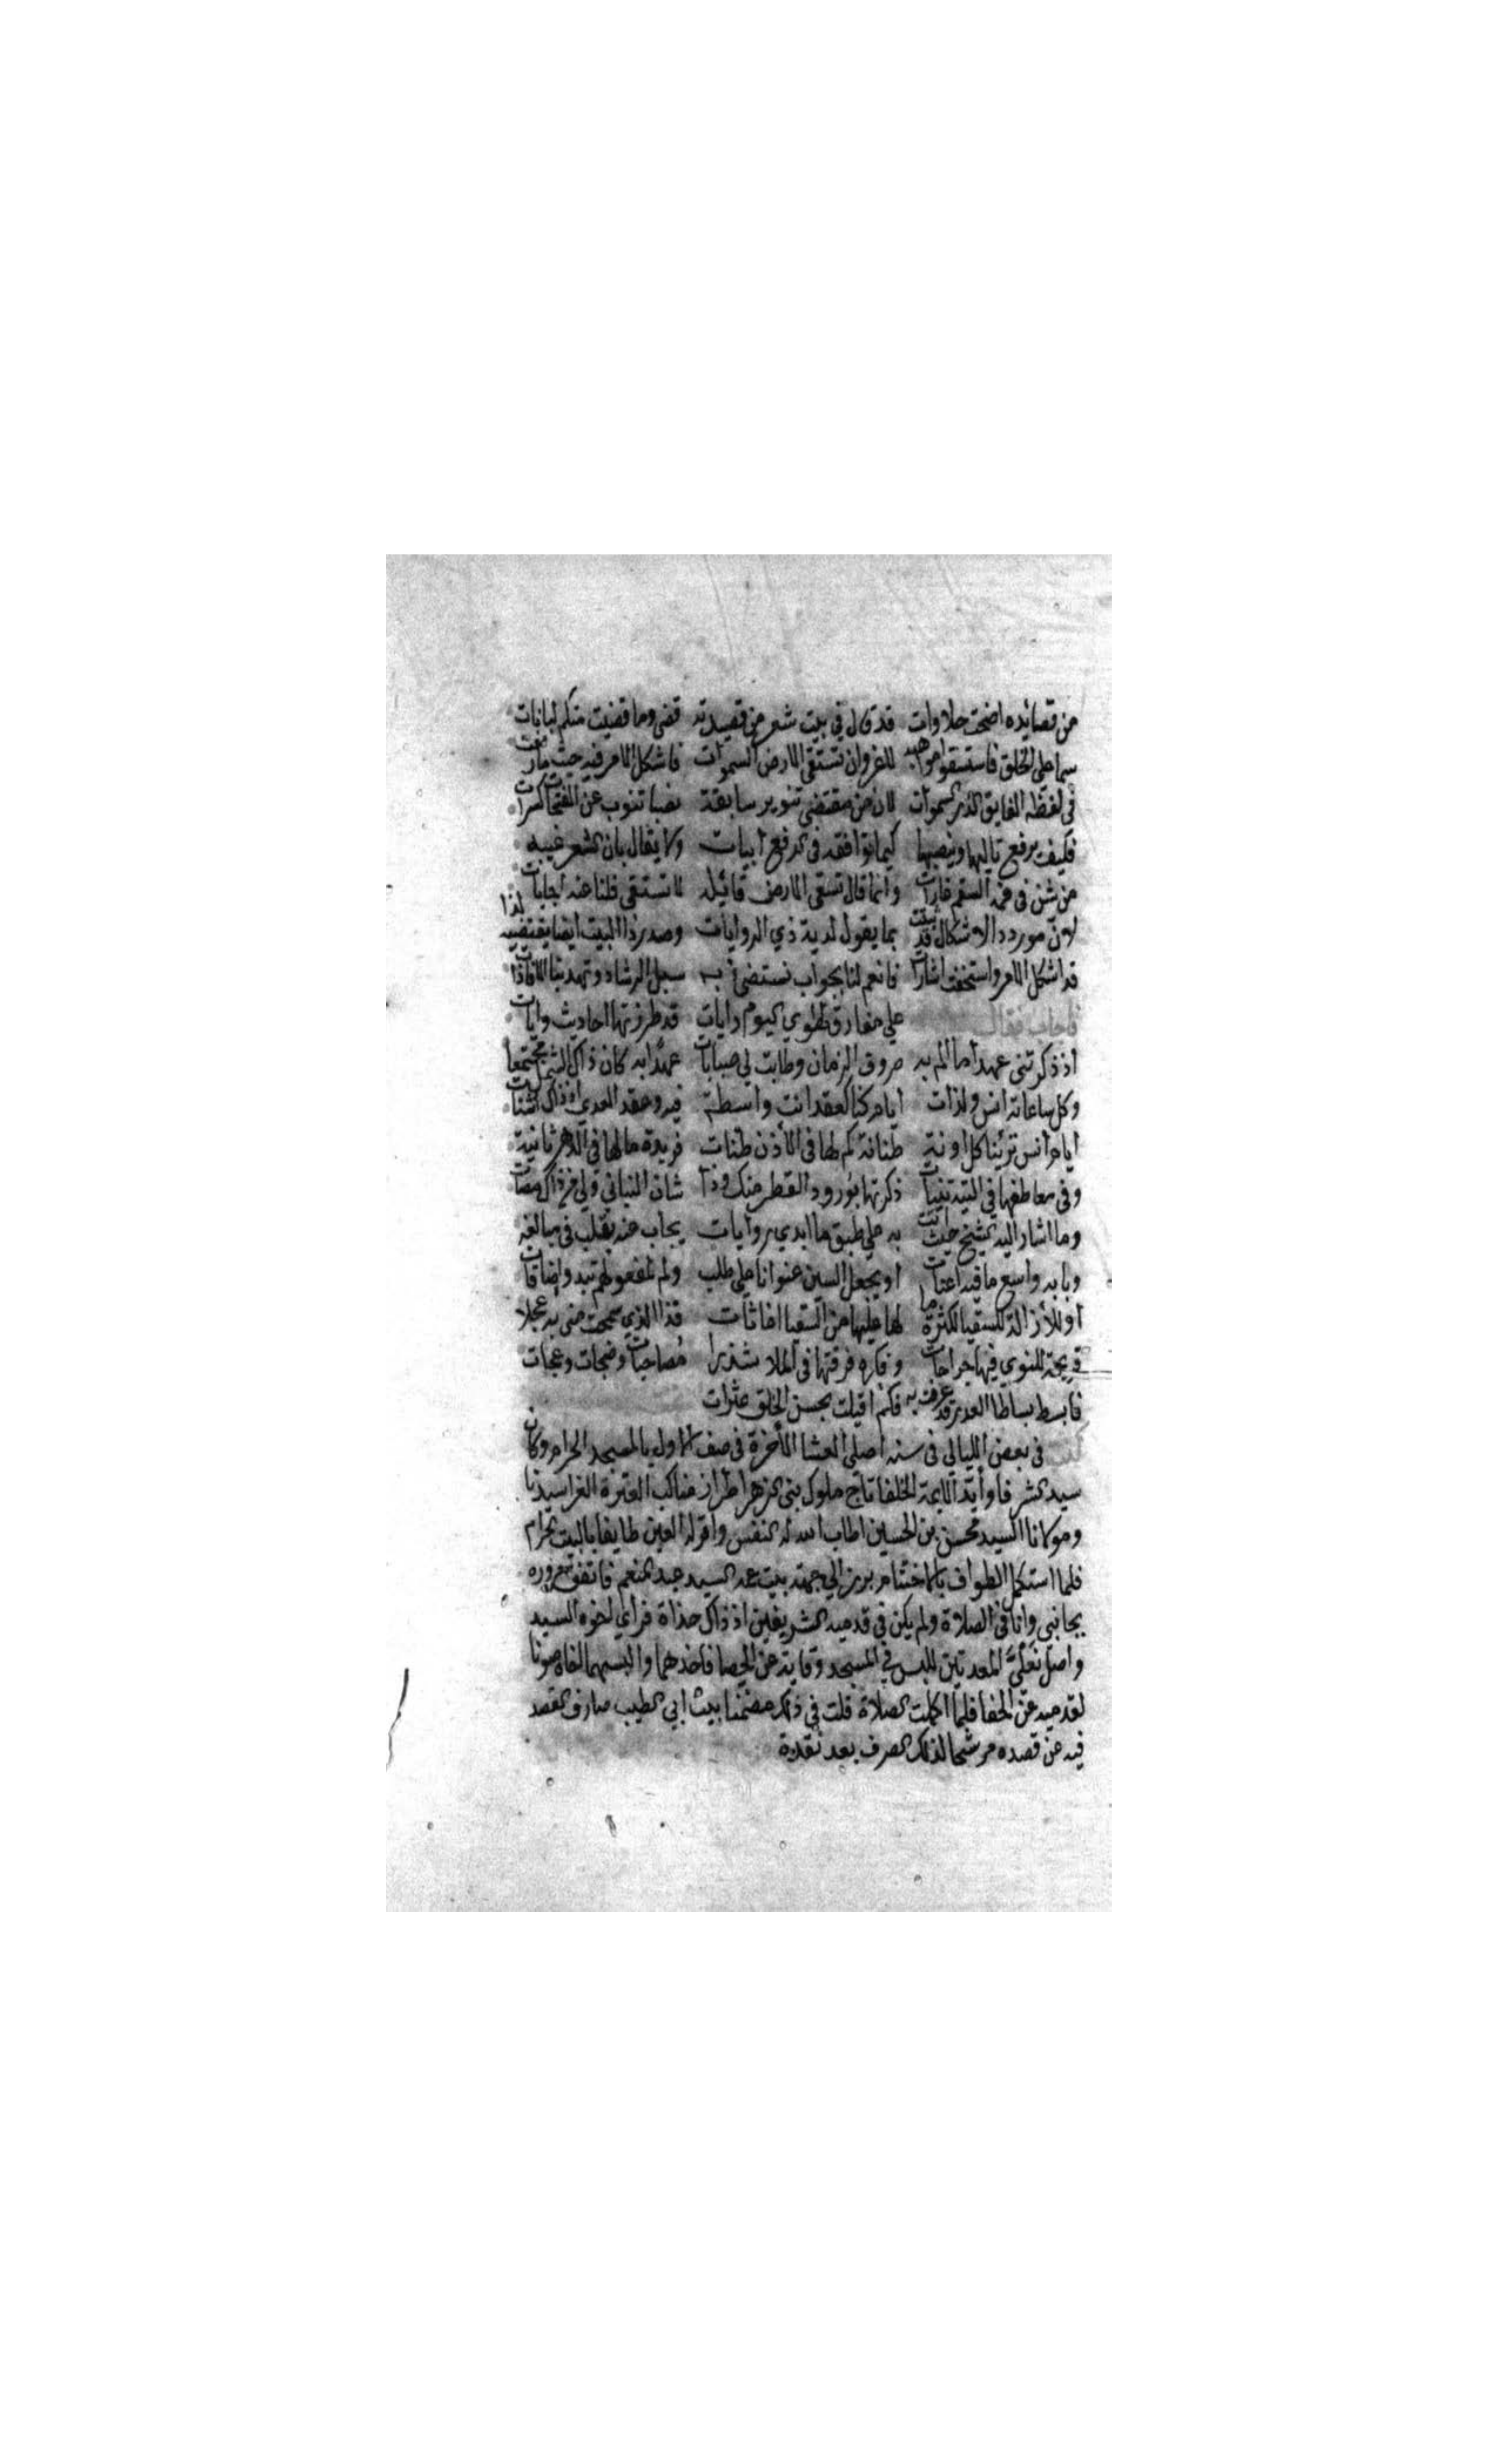 من قصائده اضحت حلاوات قد قال في بيت شعر من قصيدته قضى وما قضيت منكم لبانات
سما علي الخلق فاستسقوا مواهبه لا غرو ان تستقى الارض السموات فاشكل الامر فيه حيث
في لفظه الفايق الدر السموات لان من مقتضى تنوير سابقة نصبا تنوب عن الفتحا كسرات
فكيف يرفع تاليها وينصبها كيما توافقه في الرفع ابيات ولا يقال بان الشعر غيبه
من شن في فهمه السقم غارات وانما قال تسقى الارض قائله لا تستقى قلنا عنه اجابات
لان مورد ذا الاشكال قد بما يقول لديه ذي الروايات وصدر ذا البيت ايضا يقتضيه لذا
قد اشكل الامر واستخفت اشارات فانعم لنا بجواب نستضئ به سبل الرشاد وتهدينا الافادات
فاجاب فقال علي مفارق تطوي كيوم رايات قد طرزتها احاديث وايات
اذ ذكرتني عهدا ما الم به صروف الزمان وطابت لي صبابات عهدا به كان ذاك الشمل مجتمعا
وكل ساعاته انس ولذات ايام كنا كعقد انت واسطة فيه وعقد العدي اذ ذاك اشتات
ايام انس ترئينا كل اونة طنانة كم لها في الأذن طنات فريدة ما لها في الدهر ثانية
وفي معاطفها في التيه تنيات ذكرتها بورود القطر منك وذا شان النباتي ولي في ذاك
وما اشار اليه الشيخ حيث به علي طبق ما ابدي روايات يجاب عنه بقلب في مبالغه
وبابه واسع ما فيه اعنات او يجعل السين عنوانا علي طلب ولم لمفعولهم تبدو اضافات
او للازالة للسقيا لكثرة ما لها عليها من السقيا افاثات فذا الذي سمحت مني به عجلا
قريحة للنوي فيها جراحات وفكره فرقتها في الملا شذرا مصاحبات وضجات وعجات
فابسط بساط العذر قد عرفت به فكم اقيلت بحسن الخلق عثرات
كنت في بعض الليالي في سنه اصلي العشا الأخرة في صف الاول بالمسجد الحرام وكان
سيد الشرفا وأيد الايمة الخلفا تاج ملوك بني الزهرا طراز مناكب العترة الغرا سيدنا
ومولانا السيد محسن بن الحسين اطاب الله له النفس واقر له العين طايفا بالبيت الحرام
فلما استكمل الطواف بالاختتام برز الي جهة بيت عمه السيد عبد المنعم فاتفق مروره
بجانبي وانا في الصلاة ولم يكن في قدميه الشريفين اذ ذاك حذاة فراي لخوه السيد
واصل نعلي المعدتين للبس في المسجد وقاية عن الحصا فاخذهما والبسهما لخاه صونا
لقدميه عن الحفا فلما اكملت الصلاة قلت في ذلك مضمنا بيت ابي الطيب صارف القصد
فيه عن قصده مرشحا لذلك الصرف بعد نقده